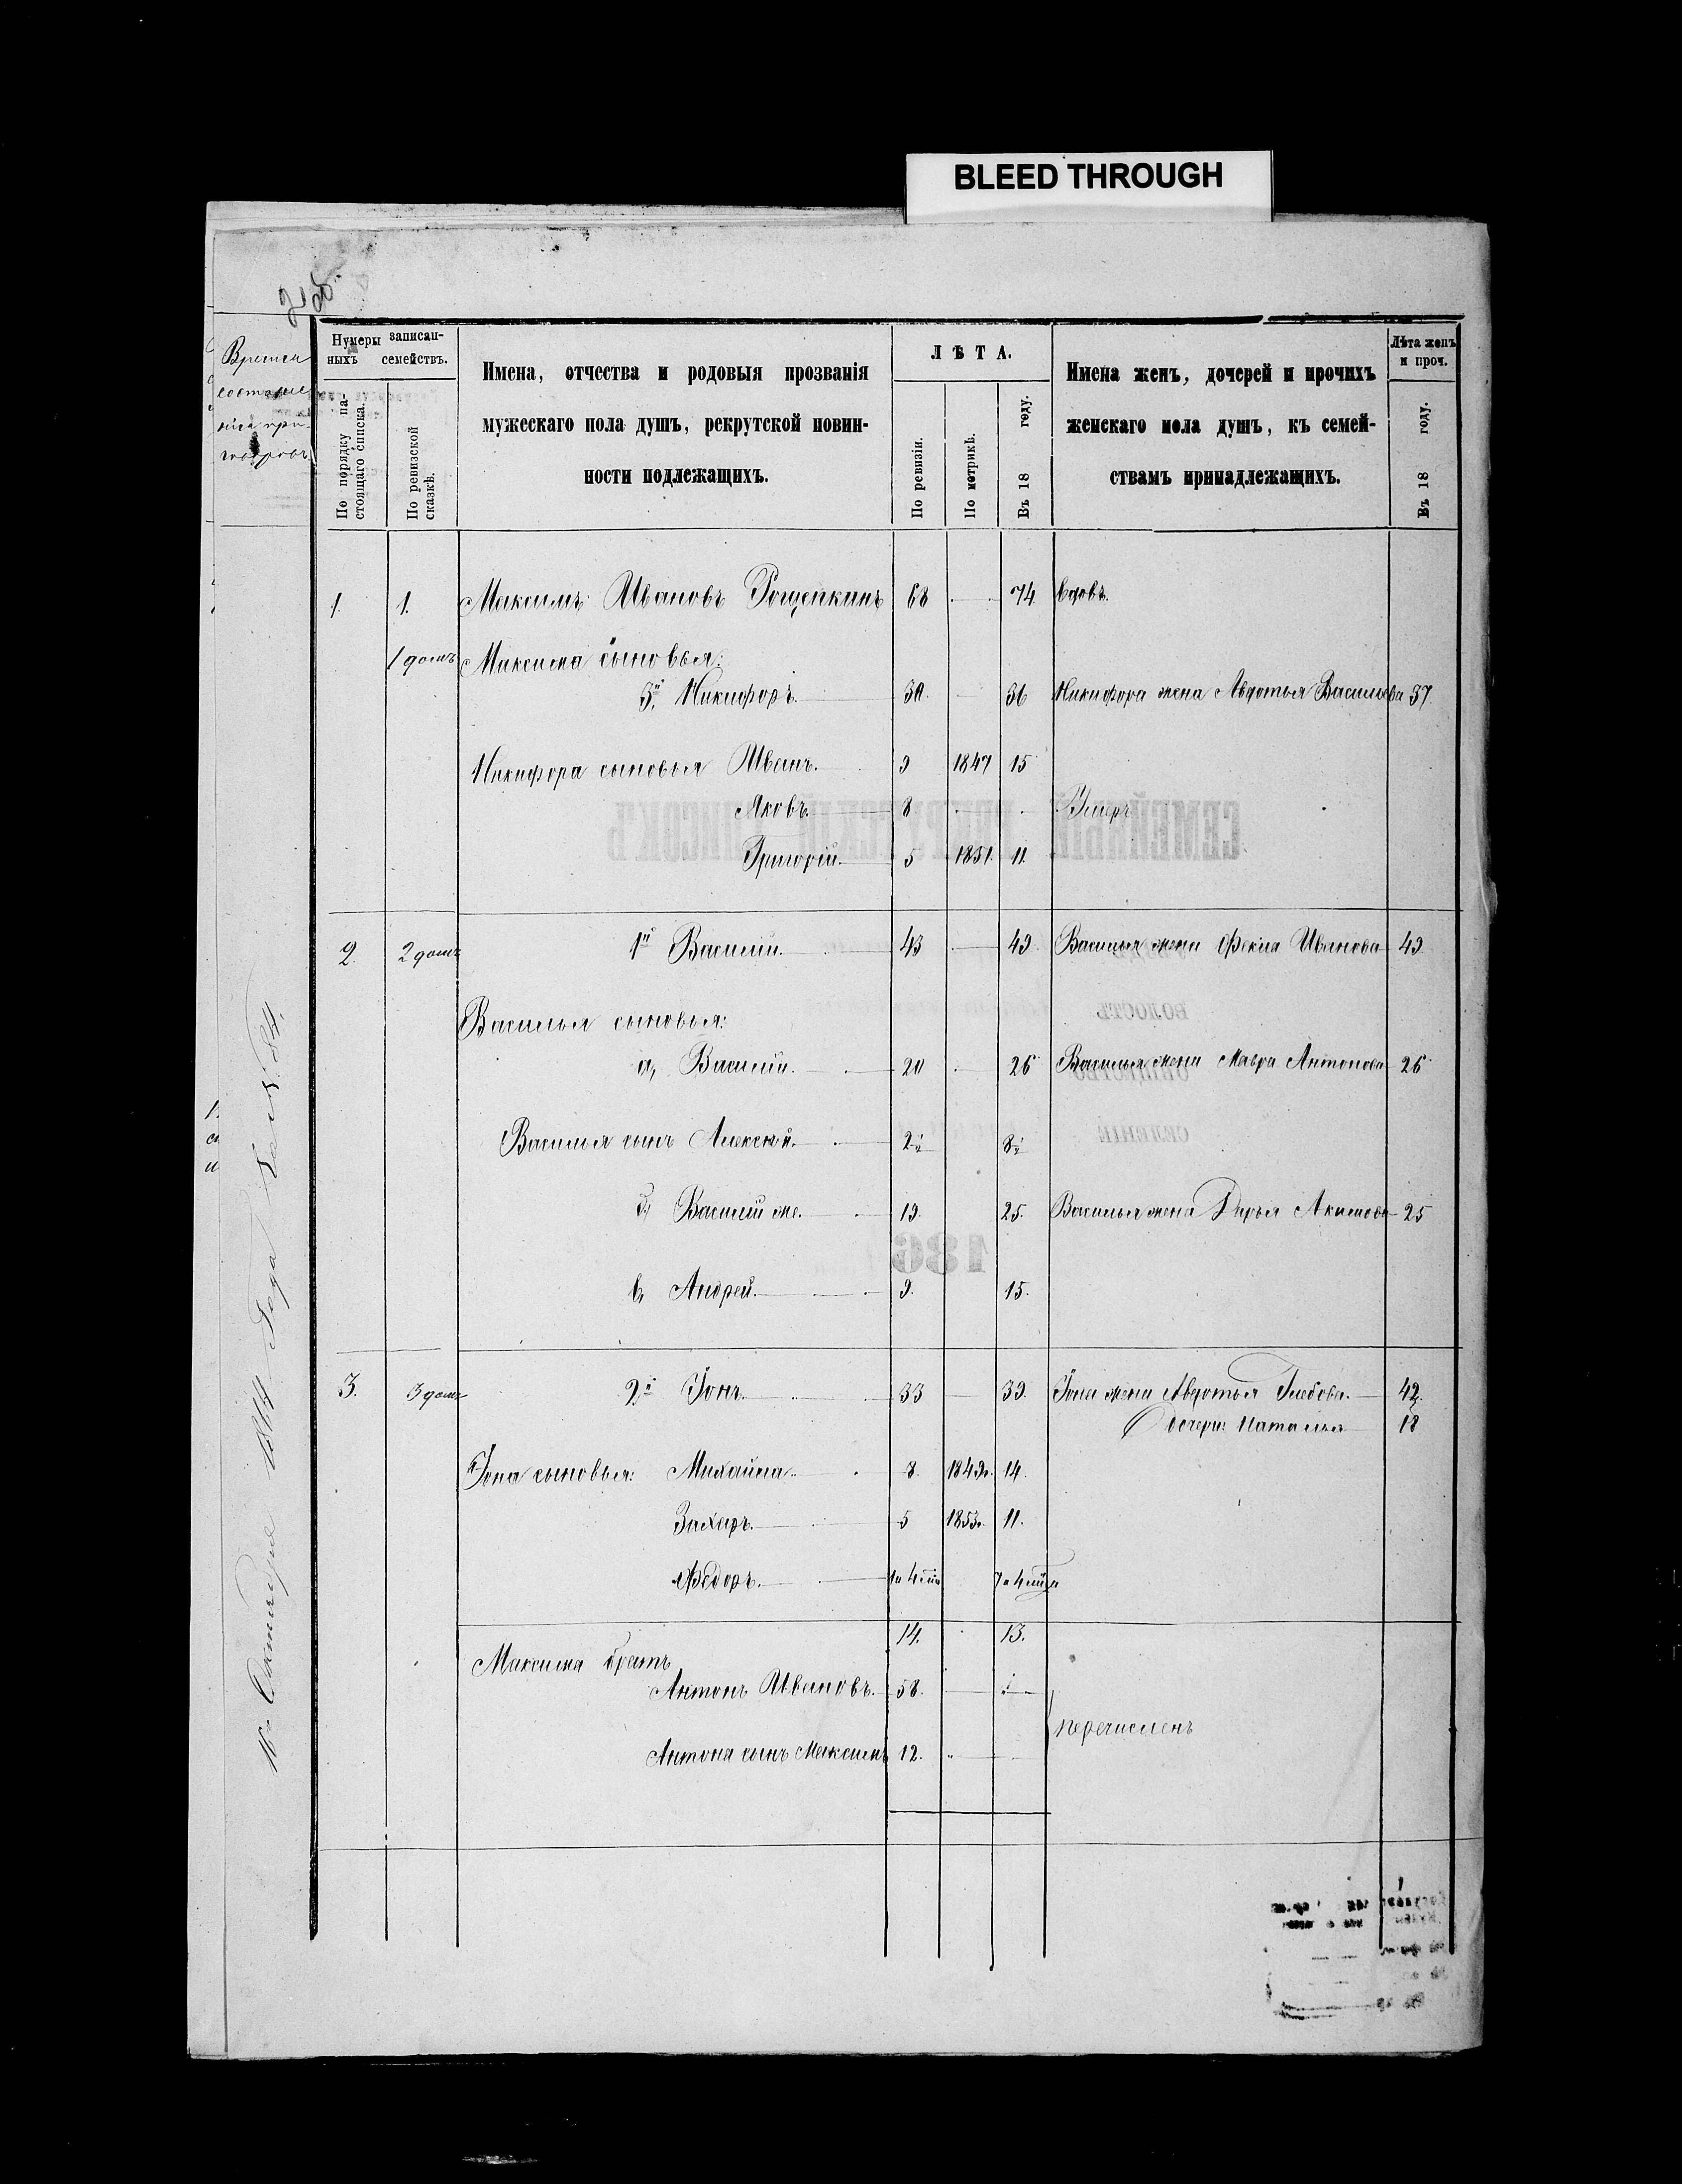 BLEED THROUGH
2 об.
Время
составле
нія при-
говоровъ
Нумеры записан-
ныхъ семействъ.
По порядку на-
стоящаго списка.
По ревизской
сказкѣ.
Имена, отчества и родовыя прозванія
мужескаго пола душъ, рекрутской повин-
ности подлежащихъ.
ЛѢТА.
По ревизіи.
По метрикѣ.
Въ 18 году.
Имена женъ, дочерей и прочихъ
женскаго пола душъ, къ семей-
ствамъ принадлежащихъ.
Лѣта женъ
и проч.
Въ 18 году.
1. 1. Максимъ Ивановъ Рощепкинъ 68 74 вдовъ.
1 домъ Максима сыновья:
3й Никифоръ. 30. 36 Никифора жена Авдотья Васильева 37.
Никифора сыновья Иванъ. 9 1847 15
Яковъ. 8 Умеръ
Григорій. 5 1851. 11.
2. 2 домъ 1й Василій. 43 49. Василья жена Фекла Иванова 49.
Василья сыновья:
а, Василій. 20 26 Василья жена Мавра Антонова 26
Василья сынъ Алексѣй. 2½ 8½
б, Василій же. 19. 25. Василья жена Дарья Акимова 25
в, Андрей. 9. 15.
3. 3 домъ 2й Іонъ. 33 39. Іона жена Авдотья Глебова. 42.
дочери: Наталья 18
Іона сыновья: Михайла. 8. 1849г. 14.
Захаръ. 5 1853г. 11.
Ѳедоръ.
14. 13.
Максима братъ
Антонъ Ивановъ. 58.
перечисленъ
Антона сынъ Максимъ 12.
Октября 1864 Года
СЕМЕЙНЫЙ РЕКРУТСКІЙ СПИСОКЪ
ВОЛОСТЬ
ОБЩЕСТВО
СЕЛЕНІЕ
186